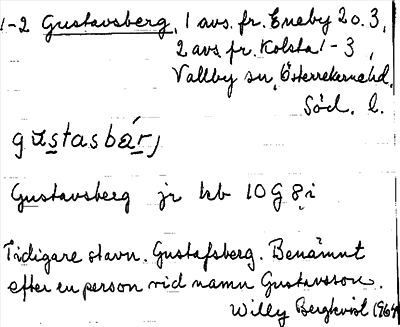 1-2 Gustavsberg, 1 avs. fr. Eneby 2 o. 3,
2 avs. fr. Kolsta 1-3,
Vallby sn, Österrekarne hd.
Söd. l.
gustasbárj
Gustavsberg jr kb 10G 8 i
Tidigare stavn. Gustafsberg. Benämnt
efter en person vid namn Gustavsson.
Willy Bergkvist 1964